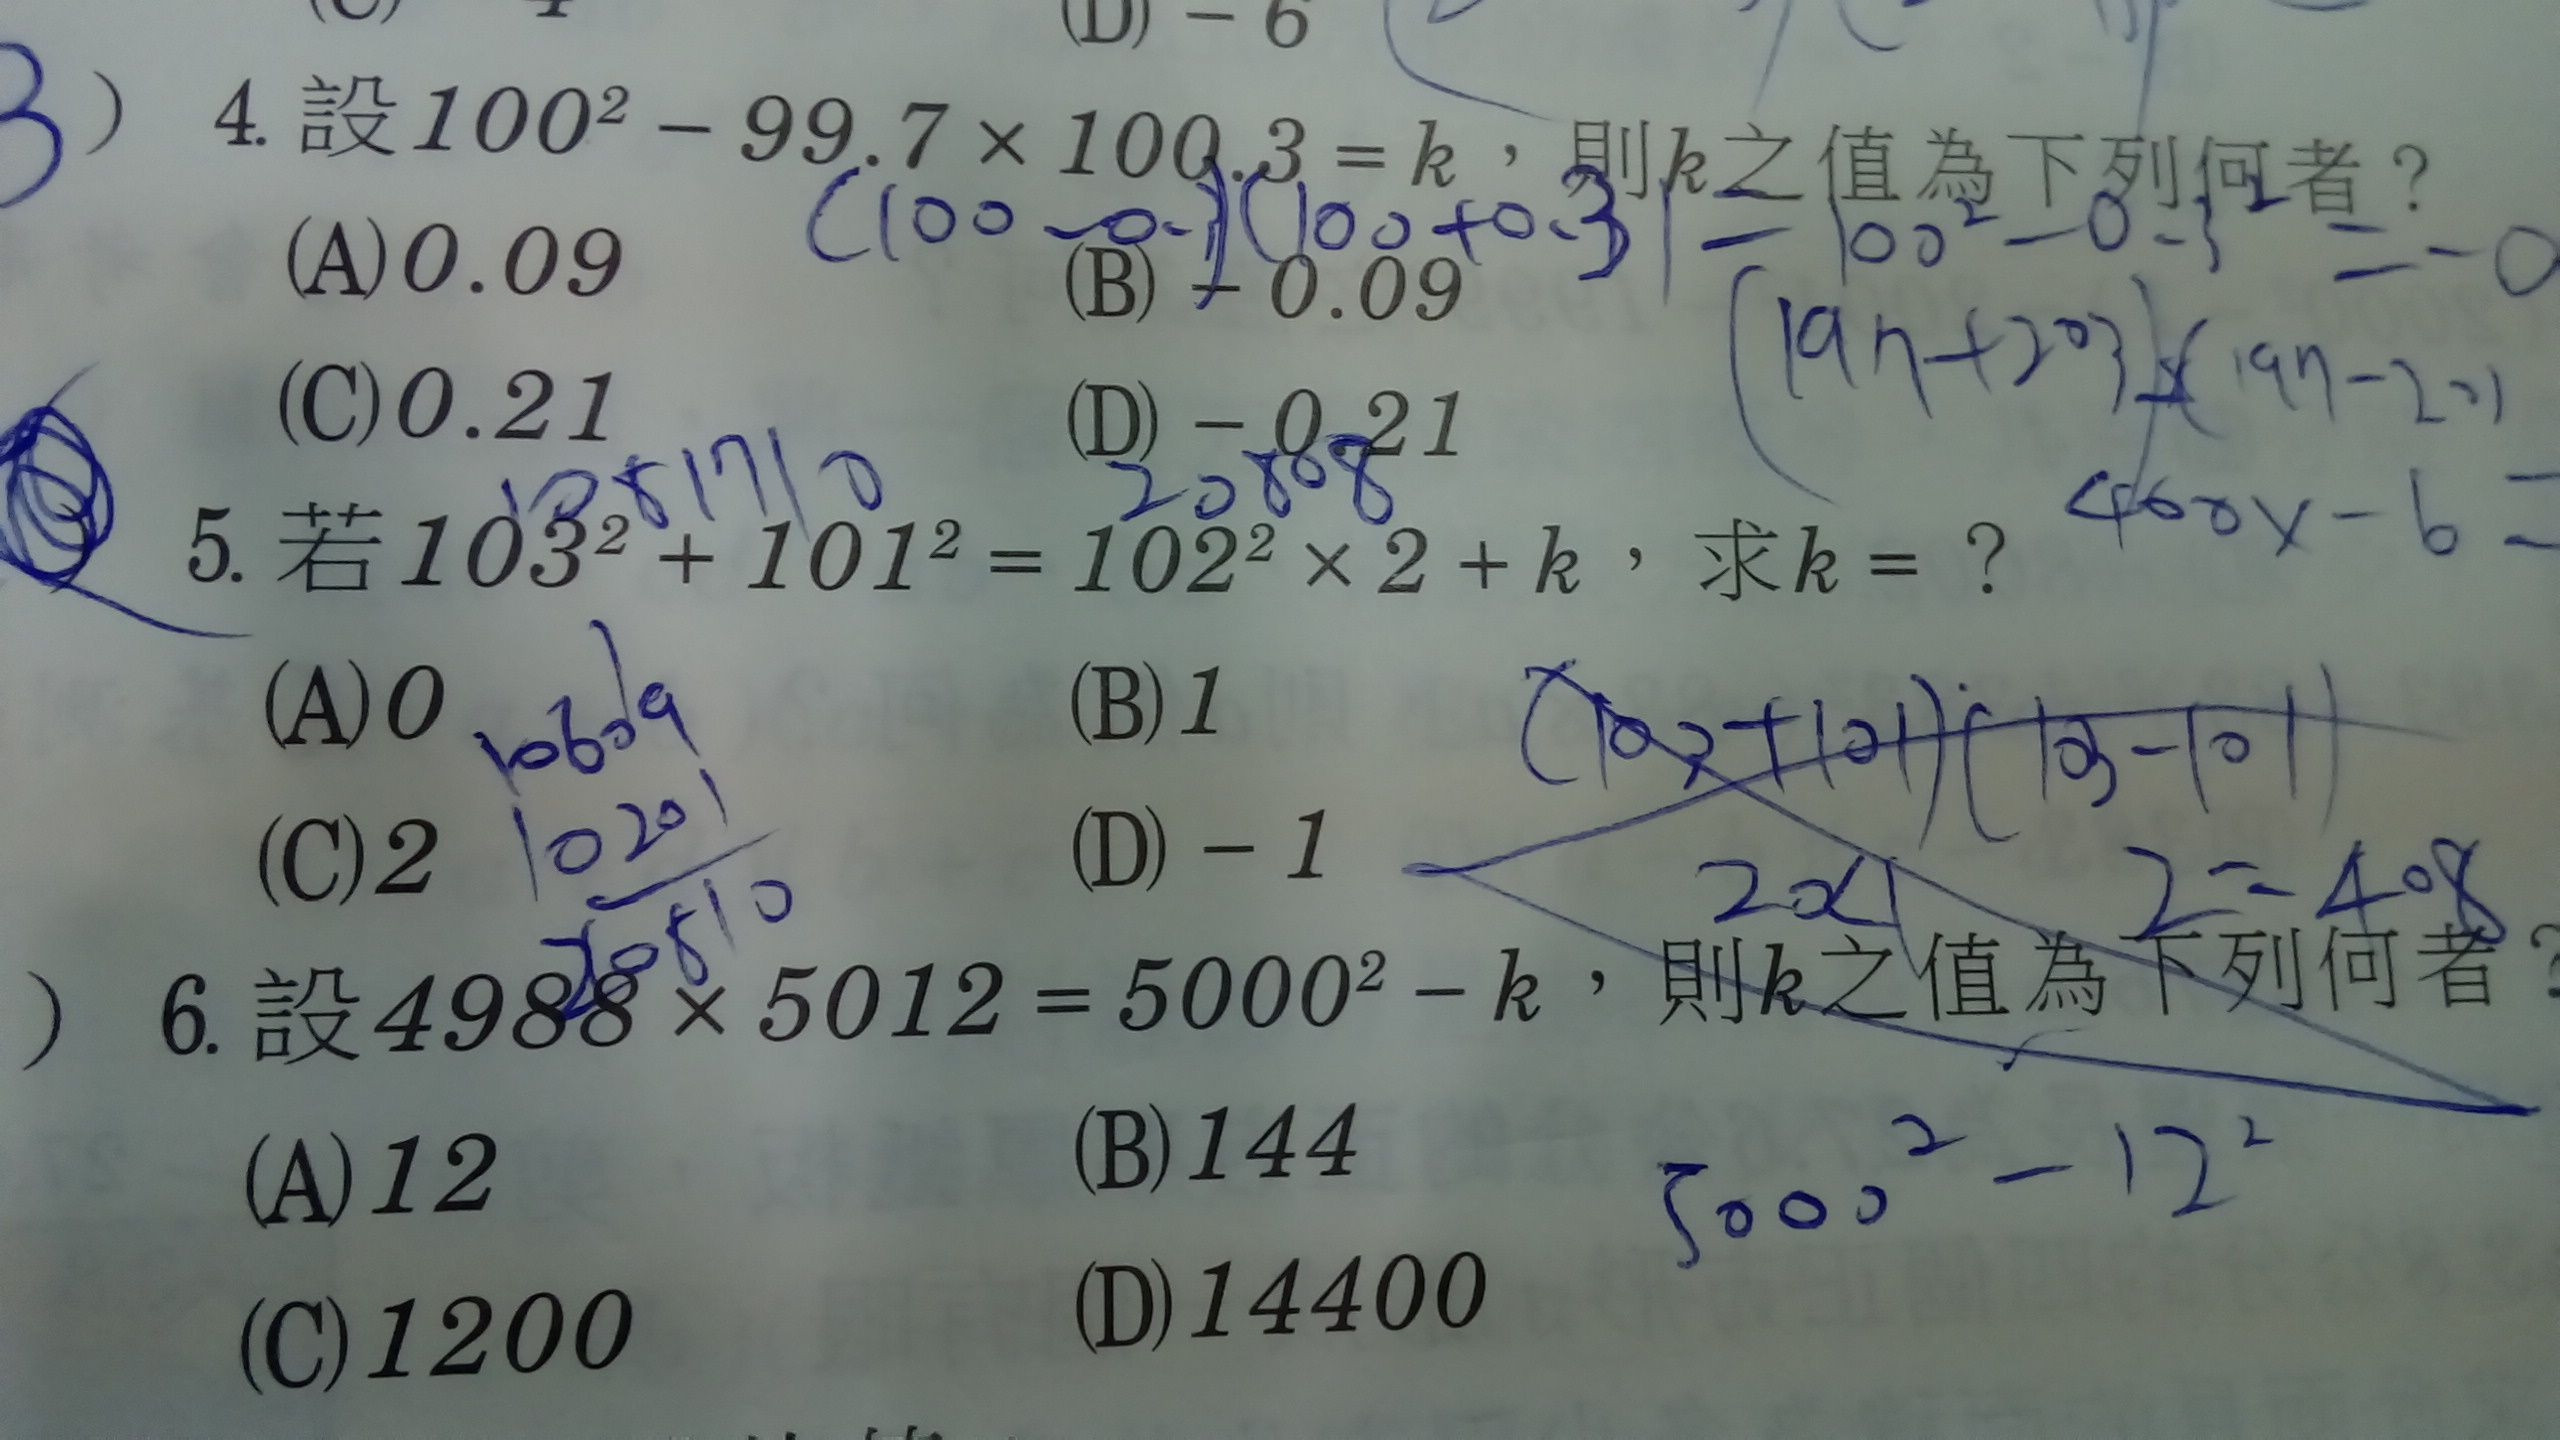 (D) - 6
3) 4. 設100² - 99.7 × 100.3 = k，則k之值為下列何者？
(100 - 0.3)(100 + 0.3) = 100² - 0.3² = -0
(A) 0.09 (B) - 0.09
(197 + 203) × (197 - 201
(C) 0.21 (D) - 0.21
400x - 6 =
20808
5. 若103² + 101² = 102² × 2 + k，求k = ？
(A) 0 (B) 1
10609
(103 + 101)(103 - 101)
(C) 2 (D) - 1
10201
2 = 408
20810
) 6. 設4988 × 5012 = 5000² - k，則k之值為下列何者？
(A) 12 (B) 144
5000² - 12²
(C) 1200 (D) 14400